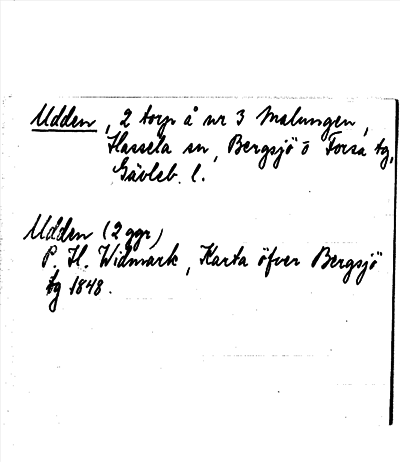 Udden, 2 torp å nr 3 Malungen,
Hassela sn, Bergsjö o Forsa tg,
Gävleb. l.
Udden (2 ggr)
P. H. Widmark, Karta öfver Bergsjö
tg 1848.